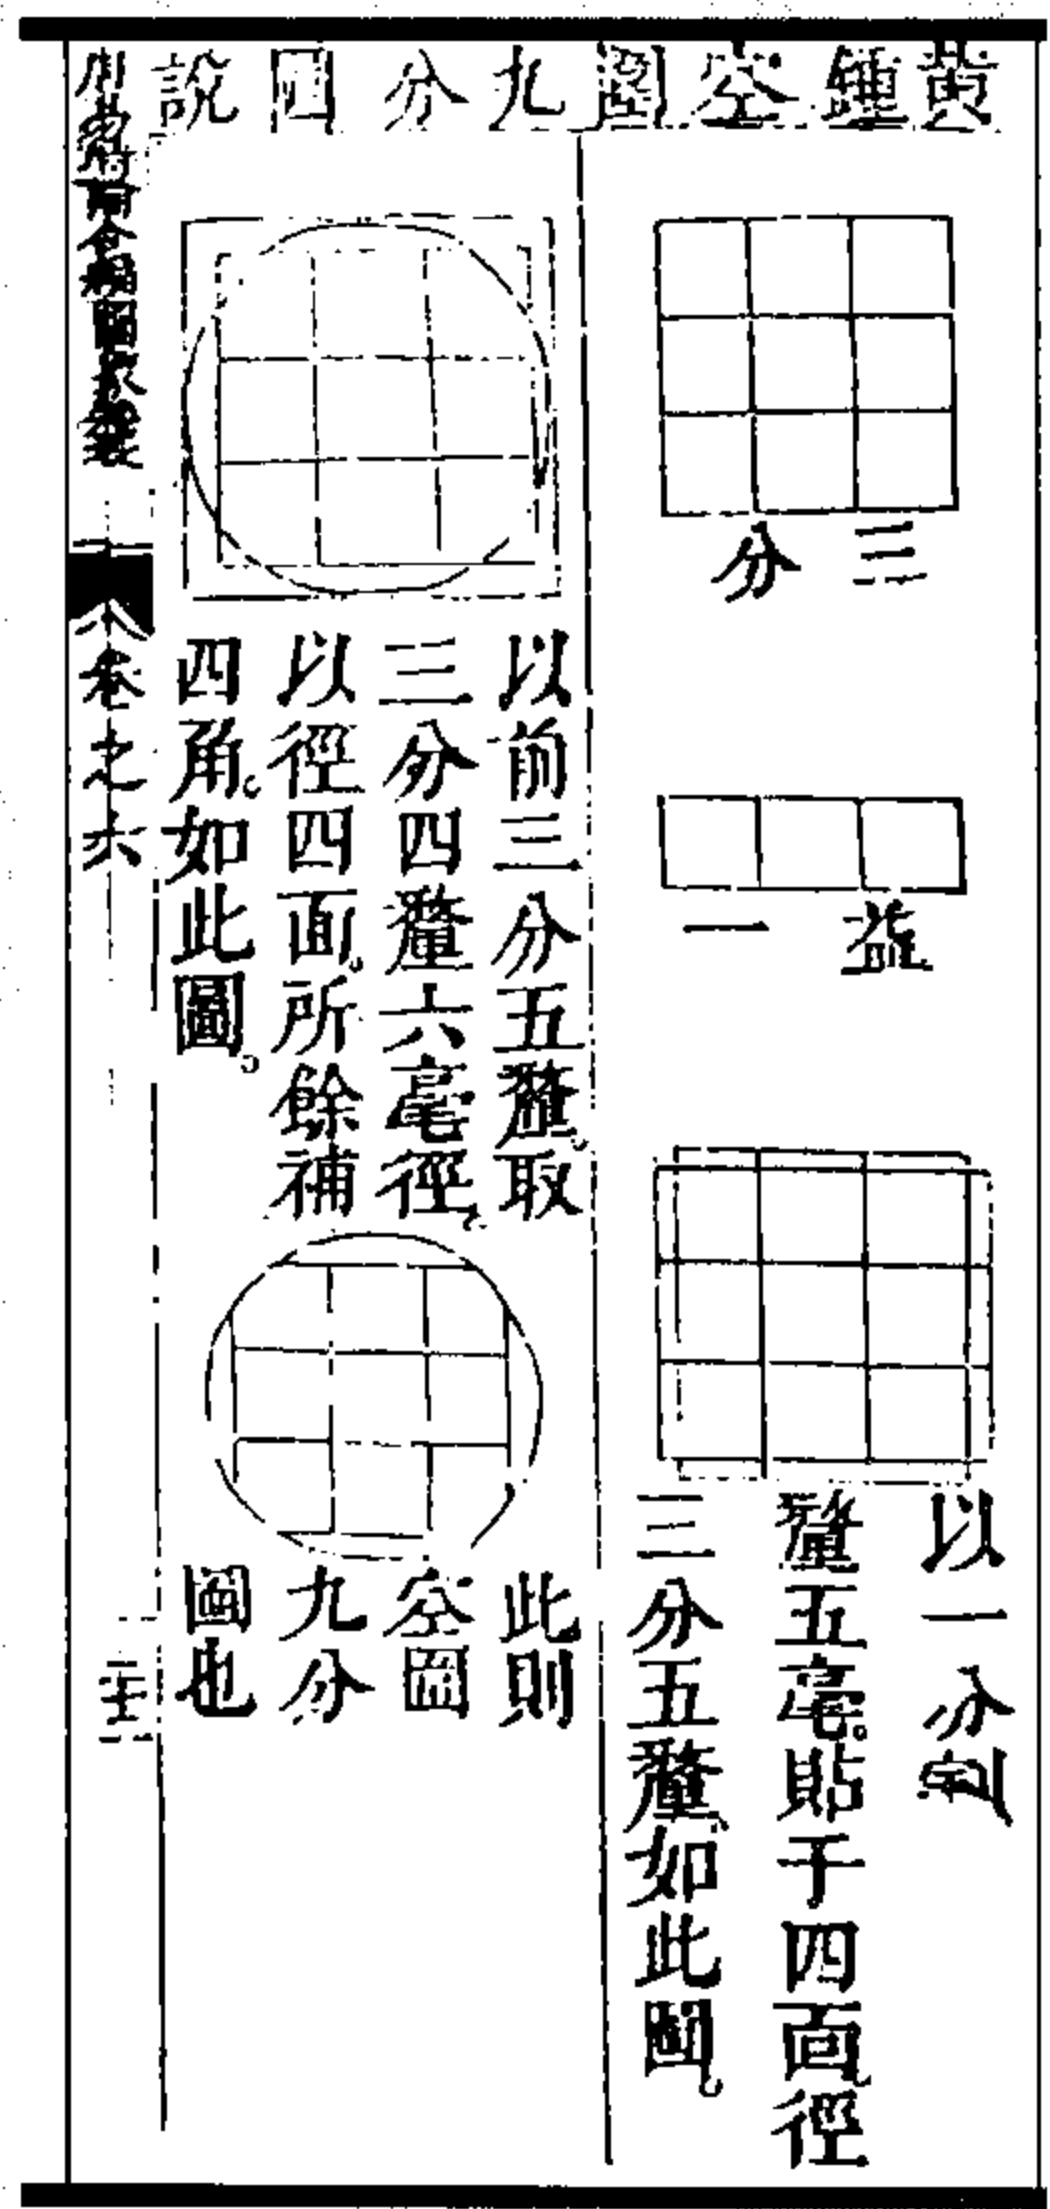 黄鍾空圍九分圖說
三分
益一
以一分割
釐五毫貼于四面徑
三分五釐如此圖
以前三分五釐取
三分四釐六毫徑
以徑四面所餘補
四角如此圖
此則
空圍
九分
圖也
卷之六